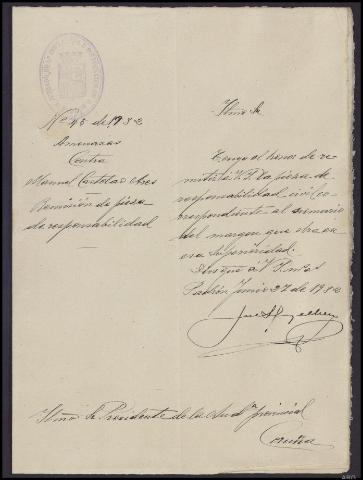 No 45 de 1932
Amenazas
Contra
Manuel Castelao Ares
Remisión de pieza
de responsabilidad
Ilmo Sr
Tengo el honor de re-
mitir á V.I. la pieza de
responsabilidad civil co-
rrespondiente al sumario
del margen que obra en
esa Superioridad.
Dios gue á V.I. m. as
Padrón Junio 27 de 1932
Ilmo Sr Presidente de la Auda provincial
Coruña